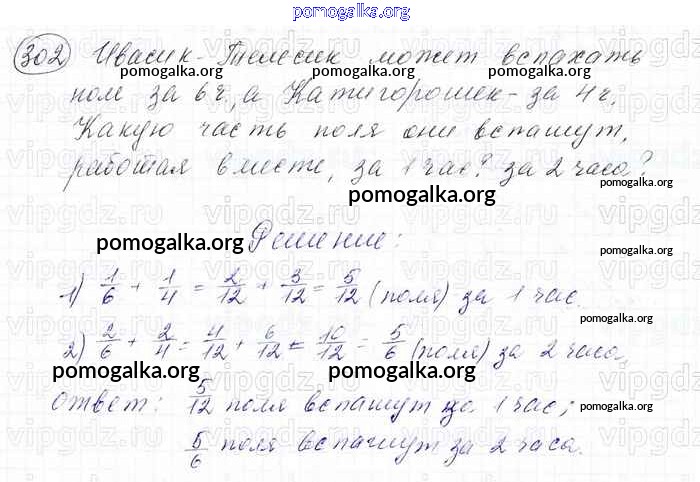 pomogalka.org
302 Ивасик-Телесик может вспахать
pomogalka.org pomogalka.org pomogalka.org
поле за 6ч, а Катигорошек - за 4ч.
Какую часть поля они вспашут,
работая вместе, за 1 час? за 2 часа?
pomogalka.org
pomogalka.org
vipgdz.ru
pomogalka.org Решение: pomogalka.org
1) 1/6 + 1/4 = 2/12 + 3/12 = 5/12 (поля) за 1 час.
pomogalka.org
2) 2/6 + 2/4 = 4/12 + 6/12 = 10/12 = 5/6 (поля) за 2 часа.
pomogalka.org pomogalka.org pomogalka.org
Ответ: 5/12 поля вспашут за 1 час;
pomogalka.org
5/6 поля вспашут за 2 часа.